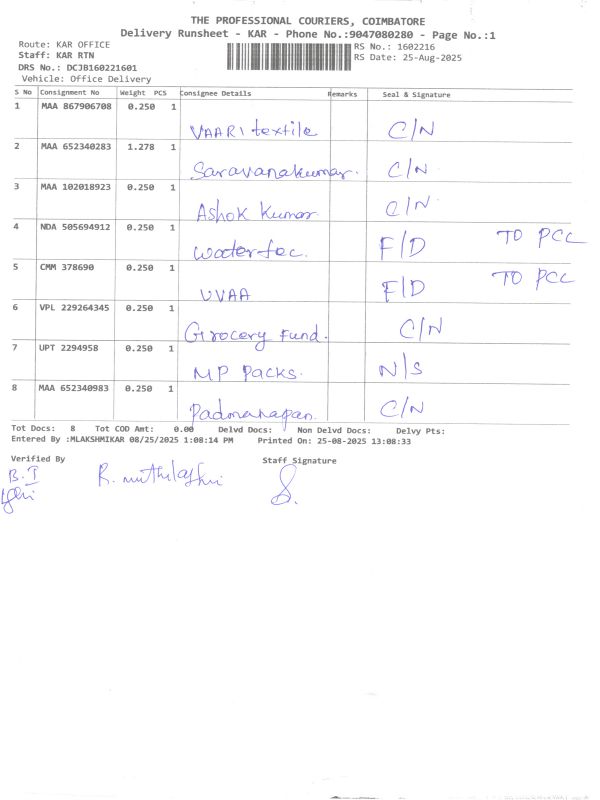 THE PROFESSIONAL COURIERS, COIMBATORE
Delivery Runsheet - KAR - Phone No.:9047080280 - Page No.:1
Route: KAR OFFICE RS No.: 1602216
Staff: KAR RTN RS Date: 25-Aug-2025
DRS No.: DCJB160221601
Vehicle: Office Delivery
S No Consignment No Weight PCS Consignee Details Remarks Seal & Signature
1 MAA 867906708 0.250 1
VAARI textile C/N
2 MAA 652340283 1.278 1
Saravanakumar. C/N
3 MAA 102018923 0.250 1
Ashok Kumar C/N
4 NDA 505694912 0.250 1
watertec. F/D TO PCC
5 CMM 378690 0.250 1
UVAA F/D TO PCC
6 VPL 229264345 0.250 1
Grocery Fund. C/N
7 UPT 2294958 0.250 1
MP Packs. N/S
8 MAA 652340983 0.250 1
C/N
Tot Docs: 8 Tot COD Amt: 0.00 Delvd Docs: Non Delvd Docs: Delvy Pts:
Entered By :MLAKSHMIKAR 08/25/2025 1:08:14 PM Printed On: 25-08-2025 13:08:33
Verified By Staff Signature